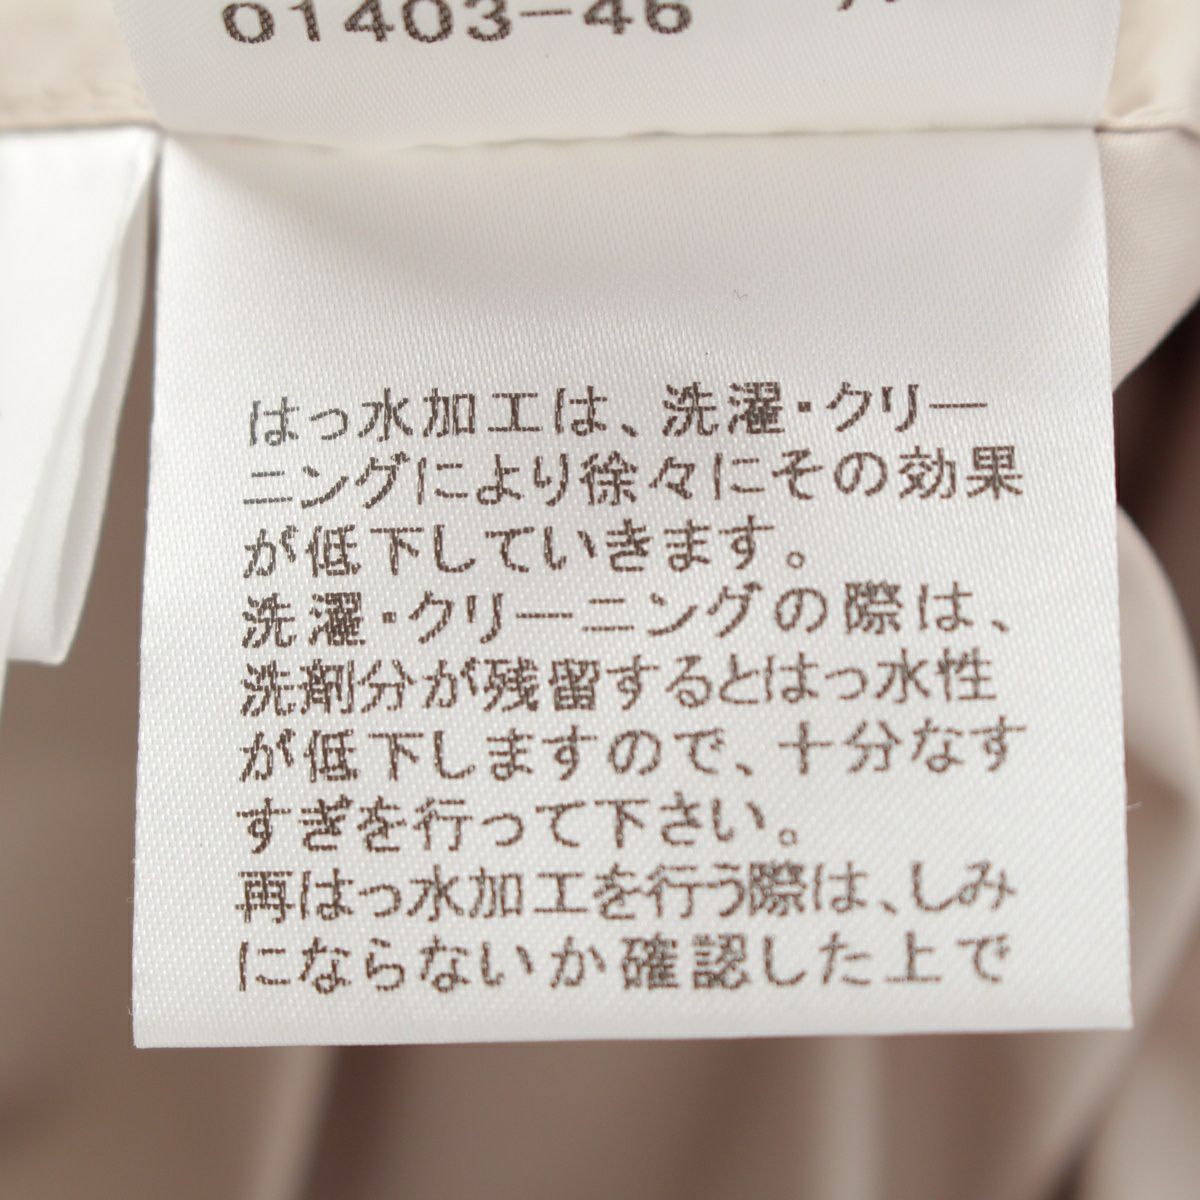 01403-46
はっ水加工は、洗濯・クリー
ニングにより徐々にその効果
が低下していきます。
洗濯・クリーニングの際は、
洗剤分が残留するとはっ水性
が低下しますので、十分なす
すぎを行って下さい。
再はっ水加工を行う際は、しみ
にならないか確認した上で